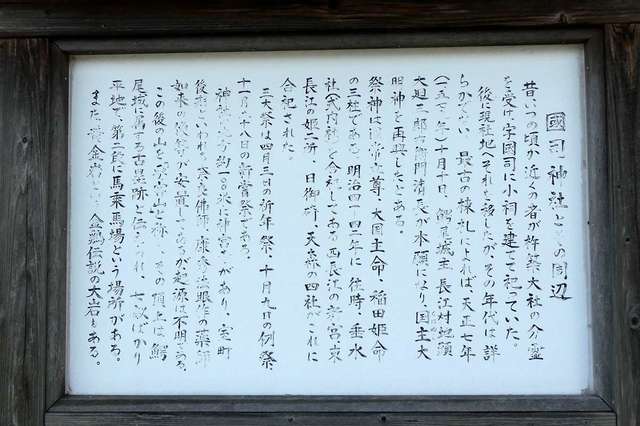 國司神社とその周辺
昔いつの頃か近くの者が杵築大社の分霊
を受け、字國司に小祠を建てて祀っていた。
後に現社地へそれを移したが、その年代は詳
らかでない。最古の棟札によれば、天正七年
(一五七九)十月十日、鰐尾城主長江村地頭
大廻二郎右衛門清長が本願になり、国主大
明神を再興したとある。
祭神は 尊、大国主命、稲田姫命
の三柱である。明治四十三年に往時、垂水
社(式内社)と合祀してある西長江の若宮、東
長江の姫二所、日御碕、天森の四社がこれに
合祀された。
三大祭は四月三日の祈年祭、十月九日の例祭
十一月二十八日の新嘗祭である。
神社の 方約一〇〇米に神宮寺 があり、室町
後期といわれる 佛師、康 法眼作の薬師
如来の 像が安置してあるが起源は不明である。
この後の山を 山と称し、その頂上は鰐
尾城に属する古墨跡と伝えられ、七 ばかり
平地で、第二段に馬乗馬場という場所がある。
また、 金岩という、金鶏伝説の大岩もある。